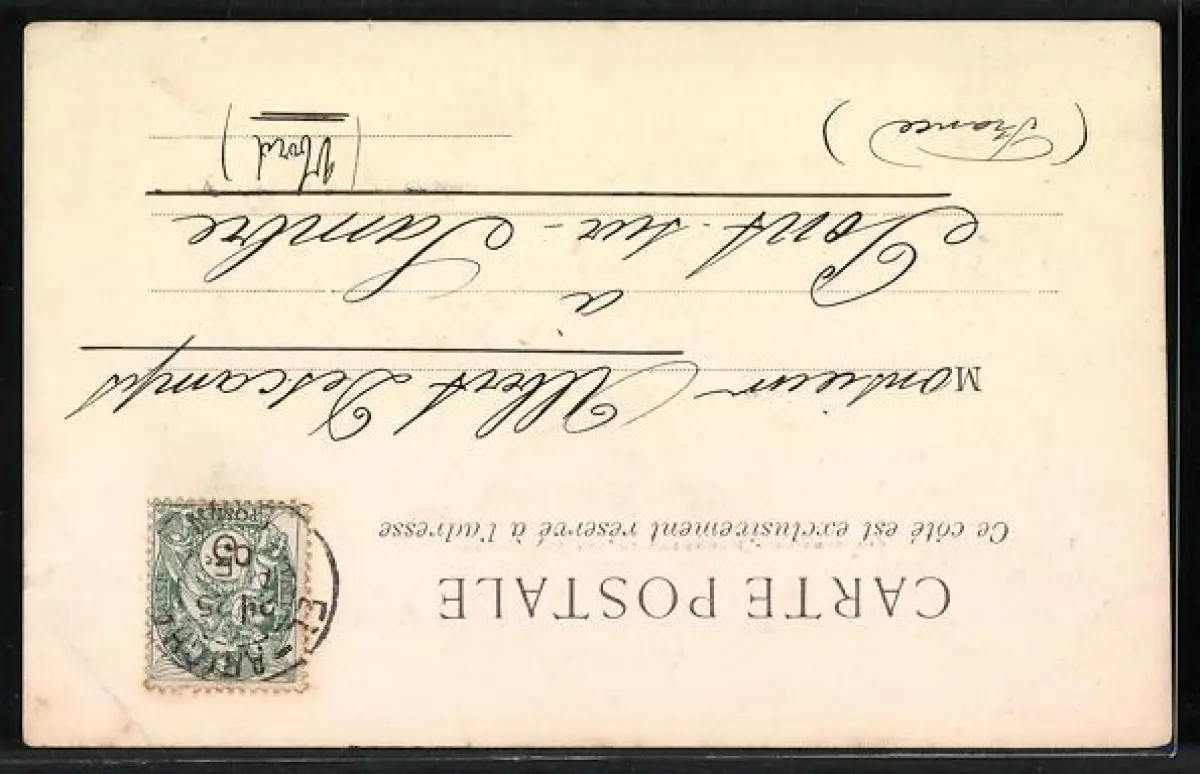 CARTE POSTALE
Ce côté est exclusivement réservé à l'adresse
EL-ARICHA
25
05
5
POSTES
Monsieur Albert Descamps
à
Pont-sur-Sambre
(Nord)
(France)